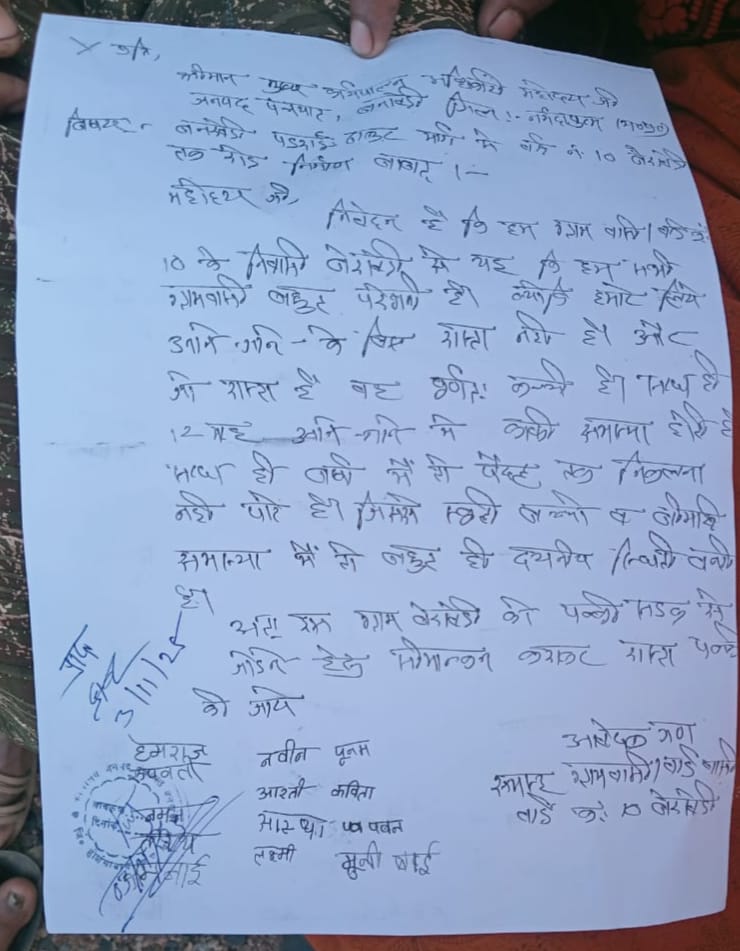 प्रति,
श्रीमान मुख्य कार्यपालन अधिकारी महोदय जी
जनपद पंचायत, बनखेडी जिला:- नर्मदापुरम (म०प्र०)
विषय:- बनखेडी पडरई ठाकुर मार्ग से वार्ड नं 10 बेरखेडी
तक रोड निर्माण बाबद ।-
महोदय जी,
निवेदन है कि हम ग्राम वासी/वार्ड क्रं
10 के निवासी बेरखेडी से यह कि हम सभी
ग्रामवासी बहुत परेशान है। क्योंकि हमारे लिये
आने जाने के लिए रास्ता नही है। और
जो रास्ता है वह पूर्णतः कच्ची है। साथ ही
12 माह आने-जाने मे काफी समास्या होती है
साथ ही बर्षा में तो पैदल तक निकलना
नही पाते है। जिससे स्कूली बच्चो व बीमारी
समास्या में तो बहुत ही दयनीय स्थिती बनी
है।
अतः ग्राम बेरखेडी को पक्की सडक से
जोडने हेतु सीमान्कन कराकर रास्ता पक्की
की जाये
3/11/25
आवेदक गण
समस्त ग्रामवासी/वार्ड वासी
वार्ड क्रं: 10 बेरखेडी
हेमराज नवीन पूनम
रूपवती
आरती कविता
आस्था पवन
लक्ष्मी मुन्नी बाई